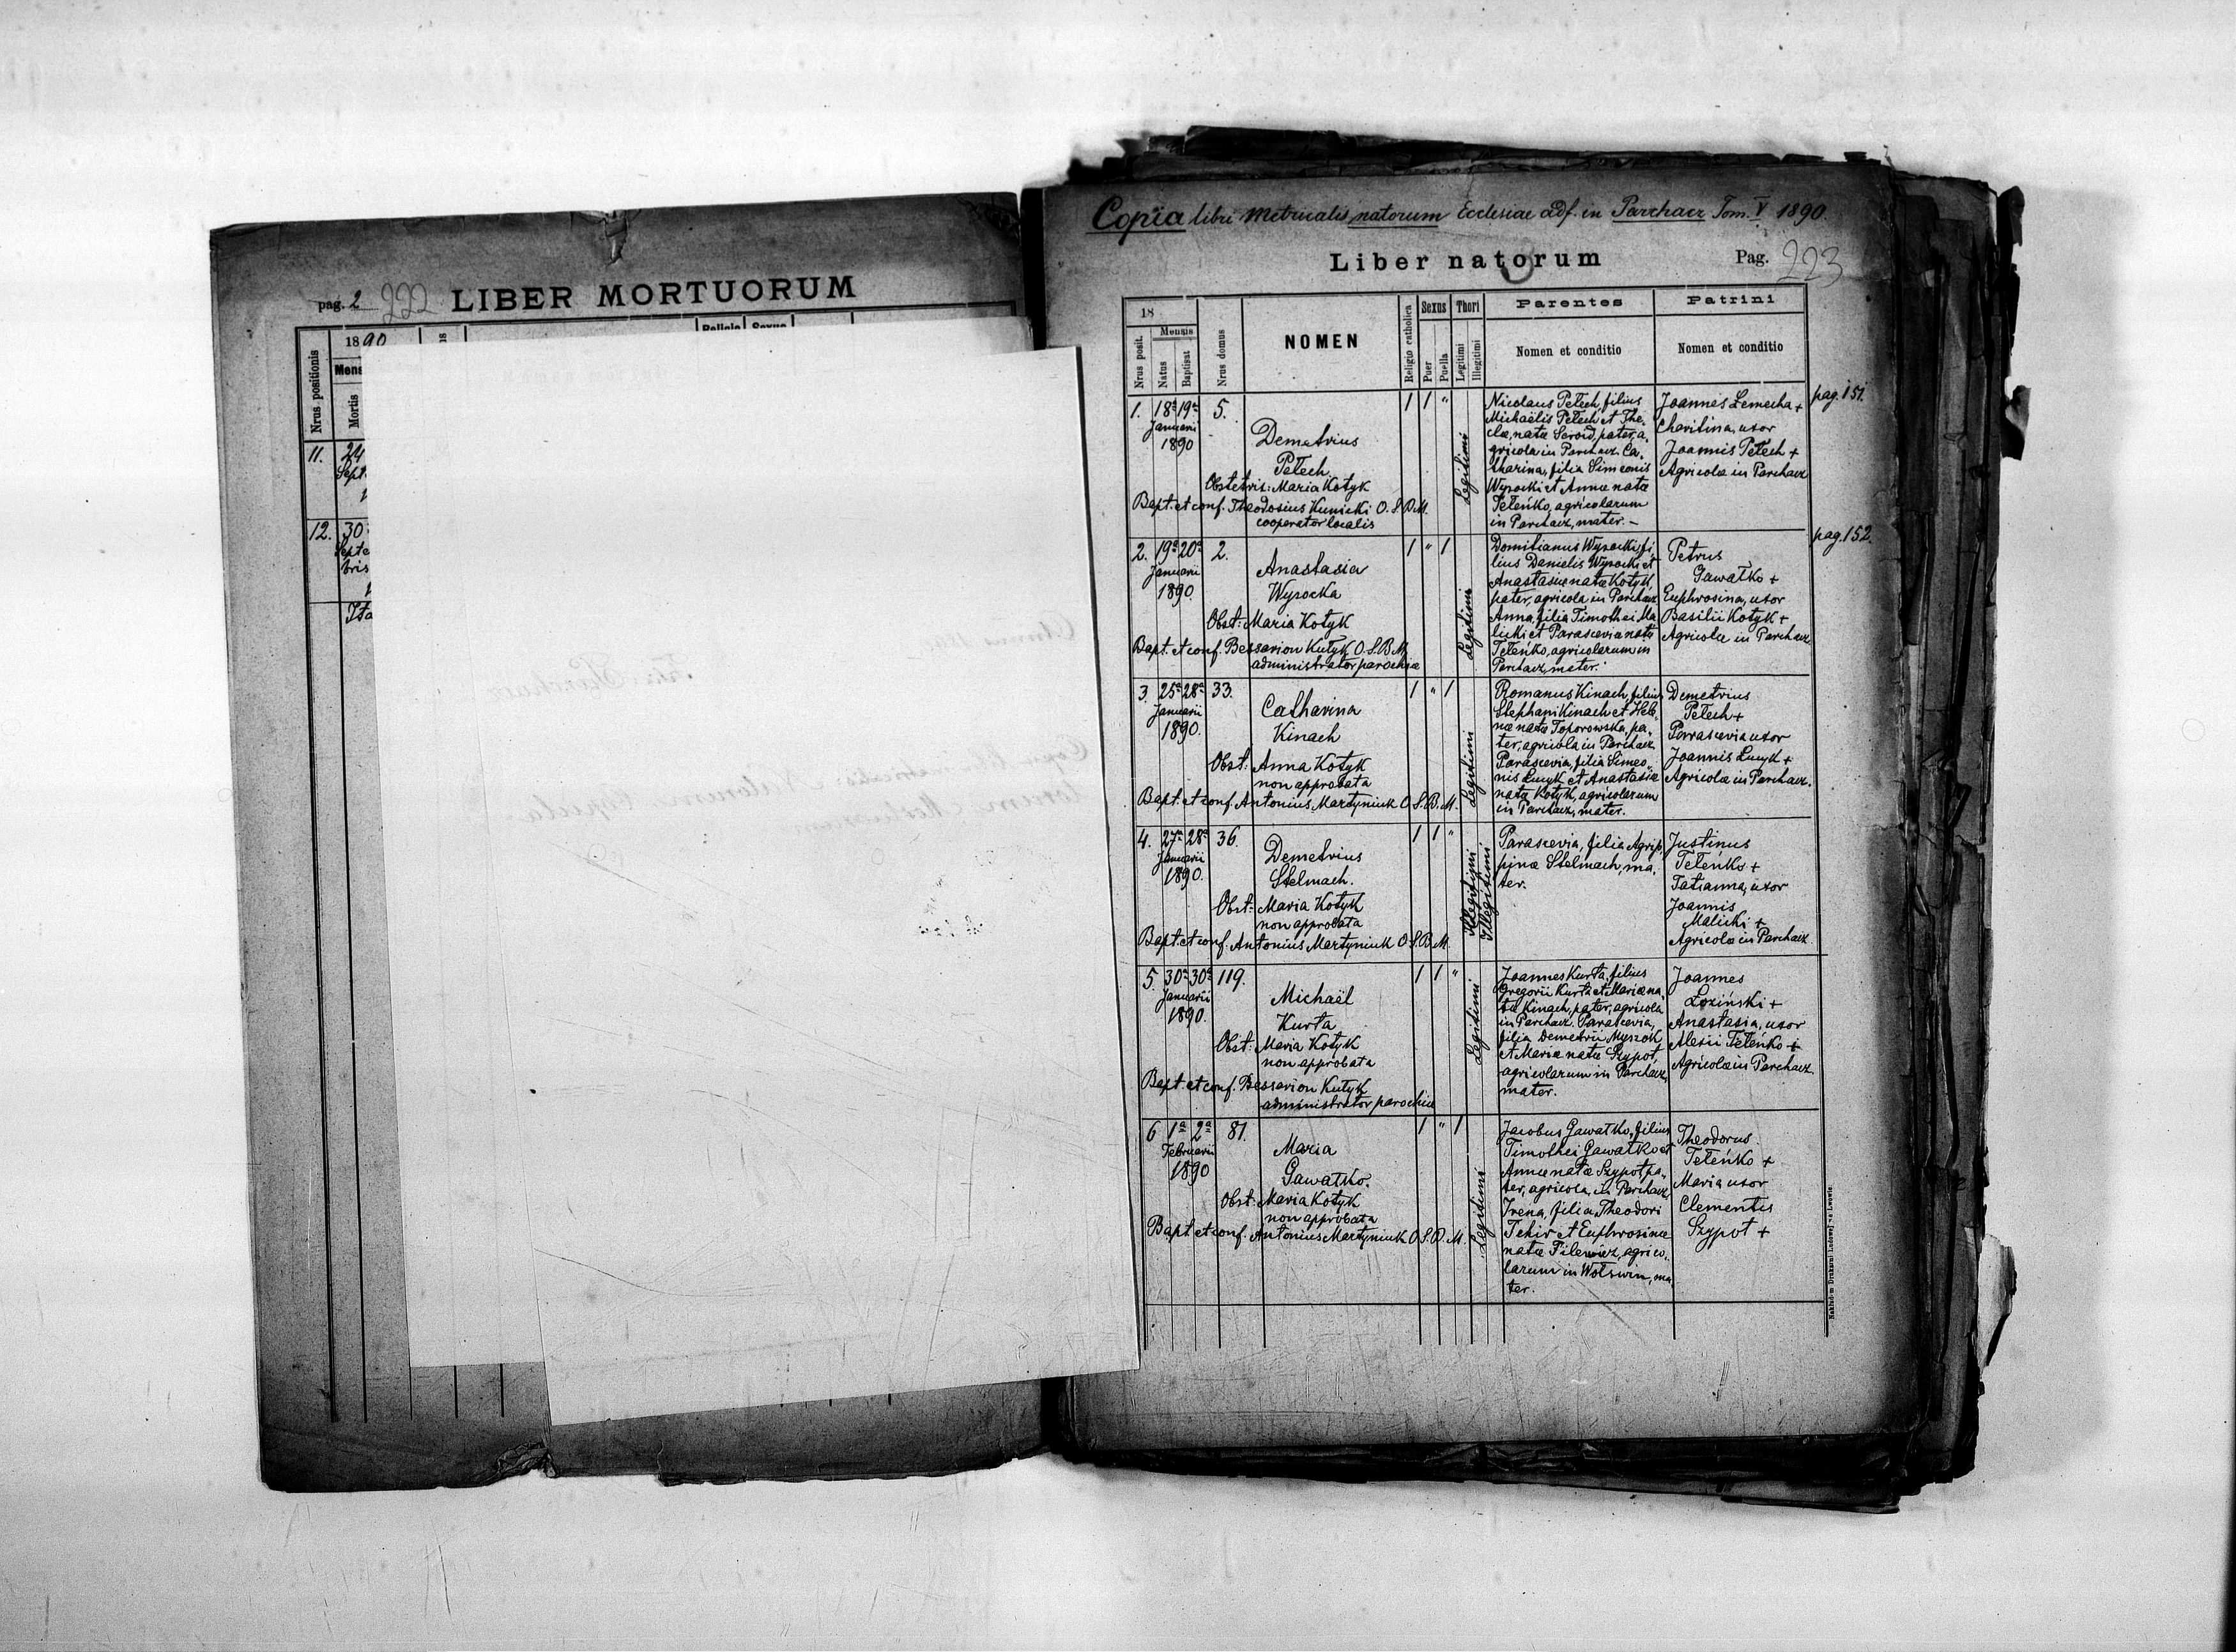 pag. 2 222 LIBER MORTUORUM
Nrus positionis
1890
Mens
Mortis
Religio
Sexus
11. 24
Sept
12. 30
Septe
bris
Ita
Copia libri Metricalis natorum Ecclesiae adf. in Parchacz Tom. V 1890.
Liber natorum Pag. 223
18
Nrus posit.
Mensis
Natus
Baptisat
Nrus domus
NOMEN
Religio catholica
Sexus
Puer
Puella
Thori
Legitimi
Illegitimi
Parentes
Nomen et conditio
Patrini
Nomen et conditio
1. 18a 19a 5.
Januarii
1890
Demetrius
Pełech
Obstetrix: Maria Kotyk
Bapt. et conf. Theodosius Kunicki O. S. B. M.
cooperator localis
1 1 "
Legitimi
Nicolaus Pełech, filius
Michaëlis Pełech et The-
clæ, natæ Seroid, pater, a-
gricola in Parchacz. Ca-
tharina, filia Simeonis
Wysocki et Annæ natæ
Teleńko, agricolarum
in Parchacz, mater. –
Joannes Lemecha +
Charitina, uxor
Joannis Pełech +
Agricolæ in Parchacz
pag. 151.
2. 19a 20a 2.
Januarii
1890.
Anastasia
Wysocka
Obst: Maria Kotyk
Bapt. et conf. Bessarion Kutyk O. S. B. M.
administrator parochiæ
1 " 1
Legitimi
Domitianus Wysocki, fi-
lius Danielis Wysocki et
Anastasiæ natæ Kotyk,
pater, agricola in Parchacz
Anna, filia Timothei Ma-
licki et Parasceviæ natæ
Teleńko, agricolarum in
Parchacz, mater.
Petrus
Gawałko +
Euphrosina, uxor
Basilii Kotyk +
Agricolæ in Parchacz
pag. 152.
3. 25a 28a 33.
Januarii
1890.
Catharina
Kinach
Obst: Anna Kotyk
non approbata
Bapt. et conf. Antonius Martyniuk O. S. B. M.
1 " 1
Legitimi
Romanus Kinach, filius
Stephani Kinach et Hele-
næ natæ Toporowska, pa-
ter, agricola in Parchacz
Parascevia, filia Simeo-
nis Lucyk et Anastasiæ
natæ Kotyk, agricolarum
in Parchacz, mater.
Demetrius
Pełech +
Parascevia uxor
Joannis Lucyk +
Agricolæ in Parchacz.
4. 27a 28a 36.
Januarii
1890.
Demetrius
Stelmach.
Obst: Maria Kotyk
non approbata
Bapt. et conf. Antonius Martyniuk O. S. B. M.
1 1 "
Illegitimi
Illegitimi
Parascevia, filia Agrip-
pinæ Stelmach, ma-
ter.
Justinus
Teleńko +
Tatianna, uxor
Joannis
Malicki +
Agricolæ in Parchacz
5. 30a 30a 119.
Januarii
1890.
Michaël
Kurta
Obst: Maria Kotyk
non approbata
Bapt. et conf. Bessarion Kutyk
administrator parochiæ
1 1 "
Legitimi
Joannes Kurta, filius
Gregorii Kurta et Mariæ na-
tæ Kinach, pater, agricola
in Parchacz. Parascevia,
filia Demetrii Myszok
et Mariæ natæ Szypot,
agricolarum in Parchacz,
mater.
Joannes
Łoziński +
Anastasia, uxor
Alexii Teleńko +
Agricolæ in Parchacz
6 1a 2a 81.
Februarii
1890
Maria
Gawałko.
Obst: Maria Kotyk
non approbata
Bapt. et conf. Antonius Martyniuk O. S. B. M.
1 " 1
Legitimi
Jacobus Gawałko, filius
Timothei Gawałko et
Annæ natæ Szypot, pa-
ter, agricola in Parchacz,
Irena, filia Theodori
Tchir et Euphrosinæ
natæ Pilewicz, agrico-
larum in Wolswin, ma-
ter.
Theodorus
Teleńko +
Maria uxor
Clementis
Szypot +
Nakładem Drukarni Ludowej we Lwowie.